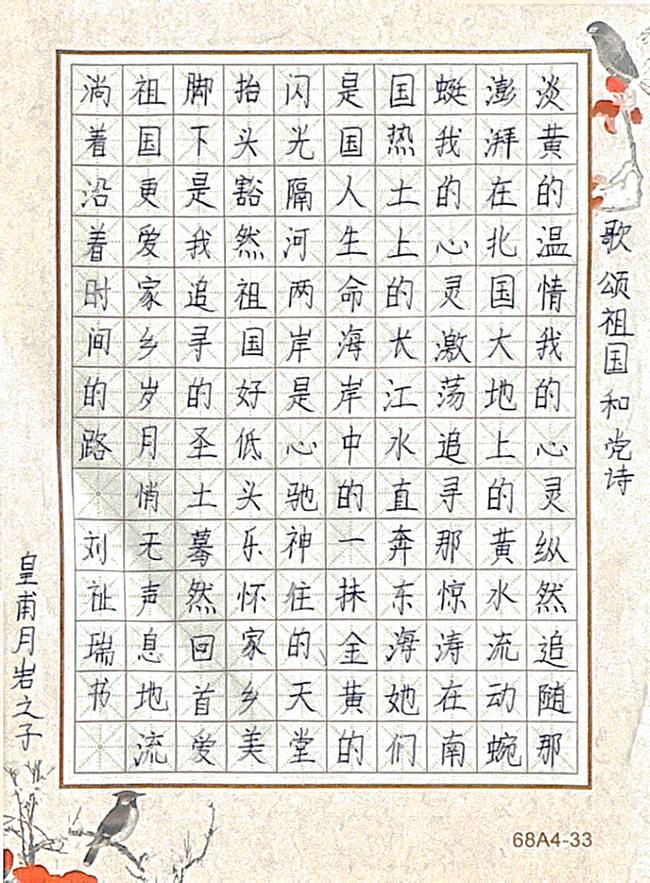 歌颂祖国和党诗
淡黄的温情我的心灵纵然追随那
澎湃在北国大地上的黄水流动蜿
蜒我的心灵激荡追寻那惊涛在南
国热土上的长江水直奔东海她们
是国人生命海岸中的一抹金黄的
闪光隔河两岸是心驰神住的、天堂
抬头豁然祖国好低头乐怀家乡美
脚下是我追寻的圣土蓦然回首爱
祖国更爱家乡岁月悄无声息地流
淌着沿着时间的路 刘祉瑞书
皇甫月岩之子
68A4-33